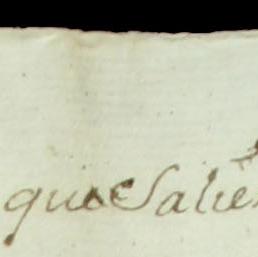 que Salie